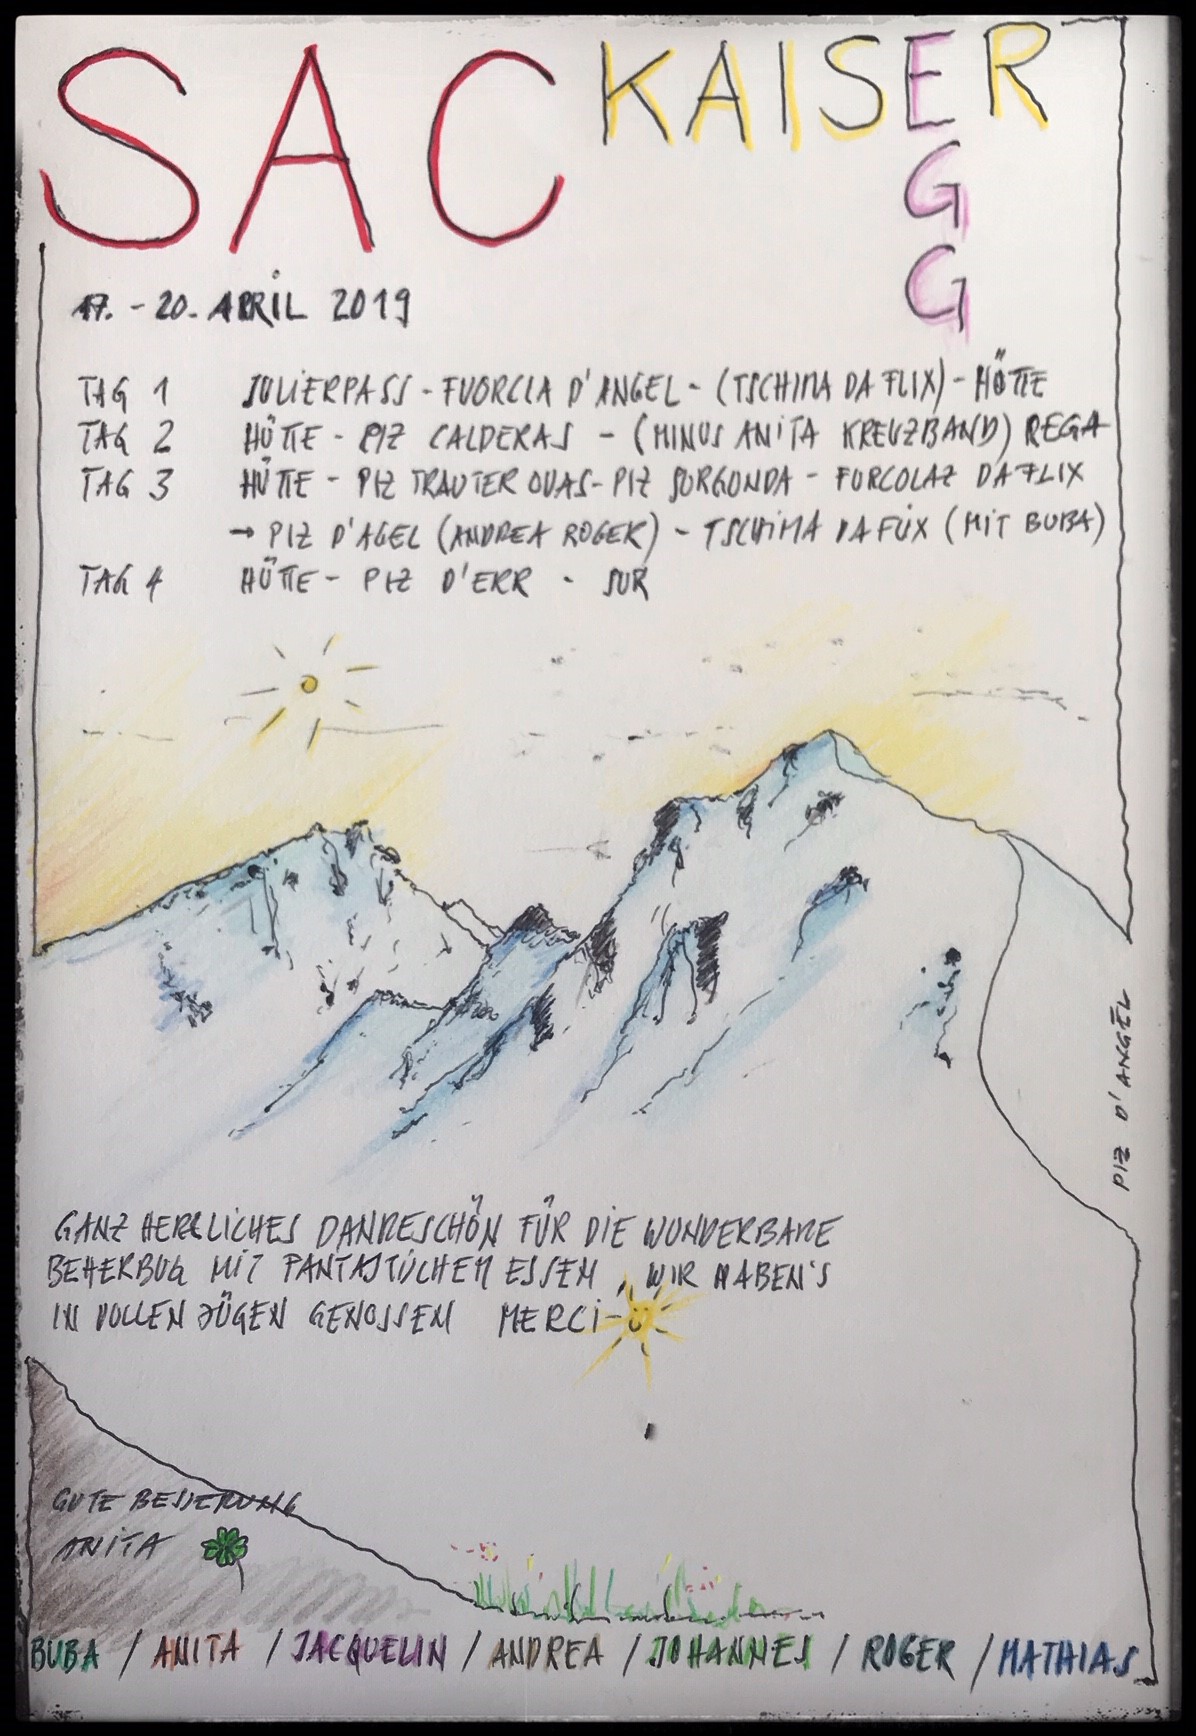 SAC KAISEREGG
17. - 20. APRIL 2019
TAG 1 JULIERPASS - FUORCLA D'ANGEL - (TSCHIMA DA FLIX) - HÜTTE
TAG 2 HÜTTE - PIZ CALDERAS - (MINUS ANITA KREUZBAND) REGA
TAG 3 HÜTTE - PIZ TRAUTER OVAS - PIZ SURGONDA - FURCOLAZ DA FLIX
→ PIZ D'AGEL (ANDREA ROGER) - TSCHIMA DA FLIX (MIT BUBA)
TAG 4 HÜTTE - PIZ D'ERR - SUR
PIZ D'ANGEL
GANZ HERRLICHES DANKESCHÖN FÜR DIE WUNDERBARE
BEHERBUG MIT FANTASTISCHEM ESSEN, WIR HABEN'S
IN VOLLEN ZÜGEN GENOSSEN MERCI-
GUTE BESSERUNG
ANITA
BUBA / ANITA / JACQUELIN / ANDREA / JOHANNES / ROGER / MATHIAS